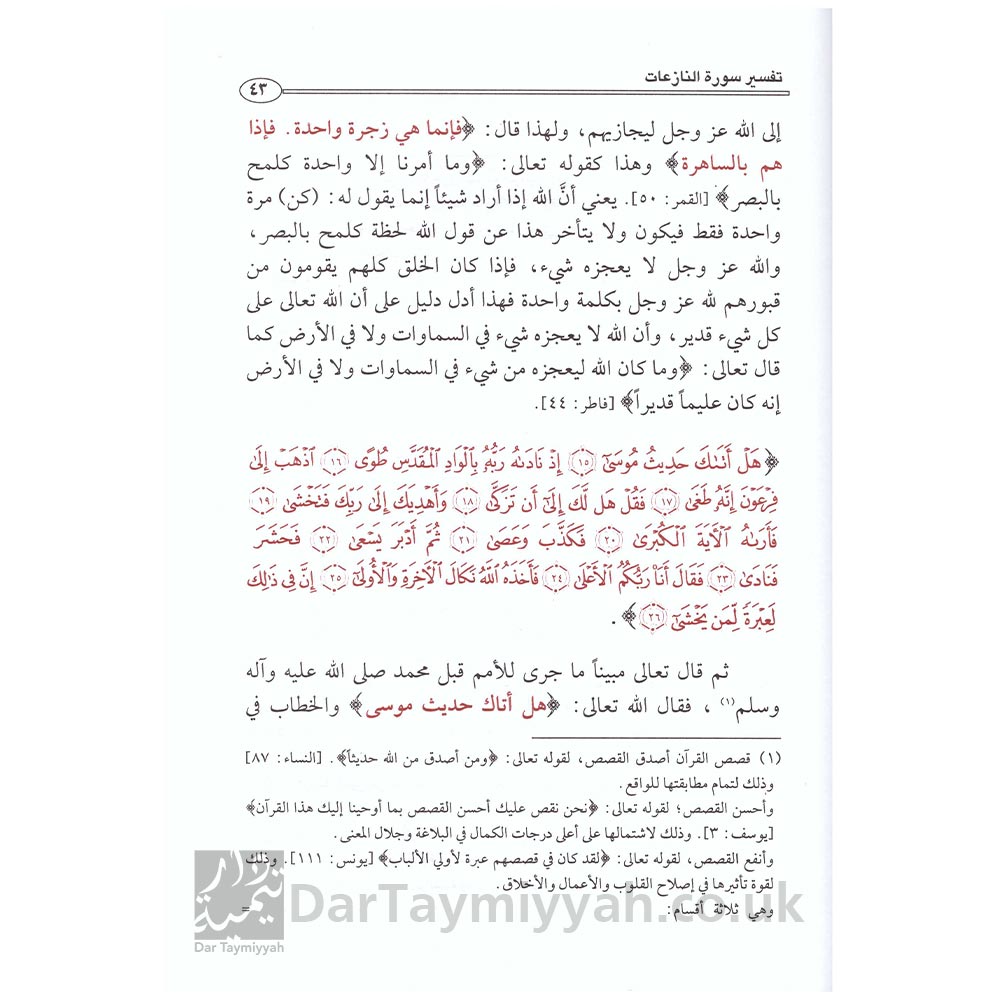 تفسير سورة النازعات
٤٣
إلى الله عز وجل ليجازيهم، ولهذا قال: ﴿فإنما هي زجرة واحدة. فإذا
هم بالساهرة﴾ وهذا كقوله تعالى: ﴿وما أمرنا إلا واحدة كلمح
بالبصر﴾ [القمر: ٥٠]. يعني أنَّ الله إذا أراد شيئاً إنما يقول له: (كن) مرة
واحدة فقط فيكون ولا يتأخر هذا عن قول الله لحظة كلمح بالبصر،
والله عز وجل لا يعجزه شيء، فإذا كان الخلق كلهم يقومون من
قبورهم لله عز وجل بكلمة واحدة فهذا أدل دليل على أن الله تعالى على
كل شيء قدير، وأن الله لا يعجزه شيء في السماوات ولا في الأرض كما
قال تعالى: ﴿وما كان الله ليعجزه من شيء في السماوات ولا في الأرض
إنه كان عليماً قديراً﴾ [فاطر: ٤٤].
﴿هَلْ أَتَىٰكَ حَدِيثُ مُوسَىٰٓ ١٥ إِذْ نَادَىٰهُ رَبُّهُۥ بِٱلْوَادِ ٱلْمُقَدَّسِ طُوًى ١٦ ٱذْهَبْ إِلَىٰ
فِرْعَوْنَ إِنَّهُۥ طَغَىٰ ١٧ فَقُلْ هَل لَّكَ إِلَىٰٓ أَن تَزَكَّىٰ ١٨ وَأَهْدِيَكَ إِلَىٰ رَبِّكَ فَتَخْشَىٰ ١٩
فَأَرَىٰهُ ٱلْـَٔايَةَ ٱلْكُبْرَىٰ ٢٠ فَكَذَّبَ وَعَصَىٰ ٢١ ثُمَّ أَدْبَرَ يَسْعَىٰ ٢٢ فَحَشَرَ
فَنَادَىٰ ٢٣ فَقَالَ أَنَا۠ رَبُّكُمُ ٱلْأَعْلَىٰ ٢٤ فَأَخَذَهُ ٱللَّهُ نَكَالَ ٱلْـَٔاخِرَةِ وَٱلْأُولَىٰٓ ٢٥ إِنَّ فِى ذَٰلِكَ
لَعِبْرَةً لِّمَن يَخْشَىٰٓ ٢٦﴾.
ثم قال تعالى مبيناً ما جرى للأمم قبل محمد صلى الله عليه وآله
وسلم(١)، فقال الله تعالى: ﴿هل أتاك حديث موسى﴾ والخطاب في
(١) قصص القرآن أصدق القصص، لقوله تعالى: ﴿ومن أصدق من الله حديثاً﴾. [النساء: ٨٧]
وذلك لتمام مطابقتها للواقع.
وأحسن القصص؛ لقوله تعالى: ﴿نحن نقص عليك أحسن القصص بما أوحينا إليك هذا القرآن﴾
[يوسف: ٣]. وذلك لاشتمالها على أعلى درجات الكمال في البلاغة وجلال المعنى.
وأنفع القصص، لقوله تعالى: ﴿لقد كان في قصصهم عبرة لأولي الألباب﴾ [يونس: ١١١]. وذلك
لقوة تأثيرها في إصلاح القلوب والأعمال والأخلاق.
وهي ثلاثة أقسام: =
دار تيمية
Dar Taymiyyah
DarTaymiyyah.co.uk